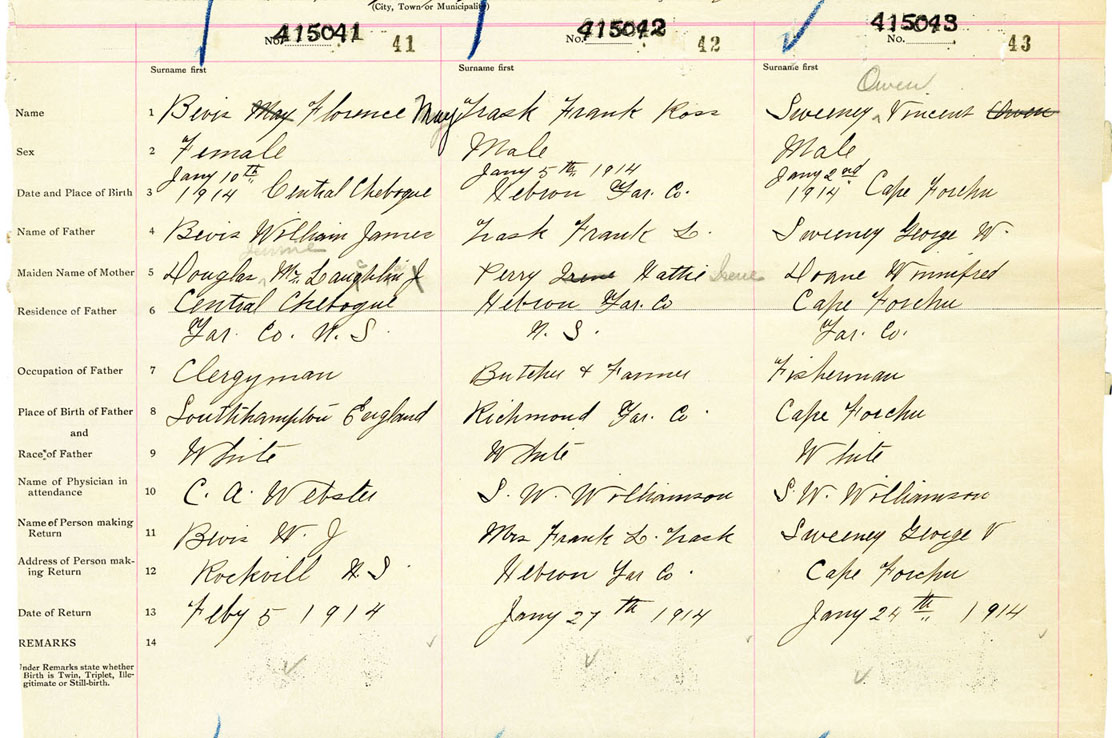 (City, Town or Municipality)
No. 415041 41 No. 415042 42 No. 415043 43
Surname first Surname first Surname first
Owen
Name 1 Bevis May Florence May Trask Frank Ross Sweeney ^ Vincent Owen
Sex 2 Female Male Male
Jany 10th Jany 5th 1914 Jany 2nd
Date and Place of Birth 3 1914 Central Chebogue Hebron Yar. Co. 1914 Cape Forchu
Name of Father 4 Bevis William James Trask Frank L. Sweeney George W.
Maiden Name of Mother 5 Douglas, McLaughlin J Perry Irene Hattie Irene Doane Winnifred
Residence of Father 6 Central Chebogue Hebron Yar. Co Cape Forchu
Yar. Co. N. S. N. S. Yar. Co.
Occupation of Father 7 Clergyman Butcher & Farmer Fisherman
Place of Birth of Father 8 Southhampton England Richmond Yar. Co. Cape Forchu
and
Race of Father 9 White White White
Name of Physician in
attendance 10 C. A. Webster S. W. Williamson S. W. Williamson
Name of Person making
Return 11 Bevis W. J Mrs Frank L. Trask Sweeney George V
Address of Person mak-
ing Return 12 Rockvill N. S. Hebron Yar Co. Cape Forchu
Date of Return 13 Feby 5 1914 Jany 27th 1914 Jany 24th 1914
REMARKS 14
Under Remarks state whether
Birth is Twin, Triplet, Ille-
gitimate or Still-birth.